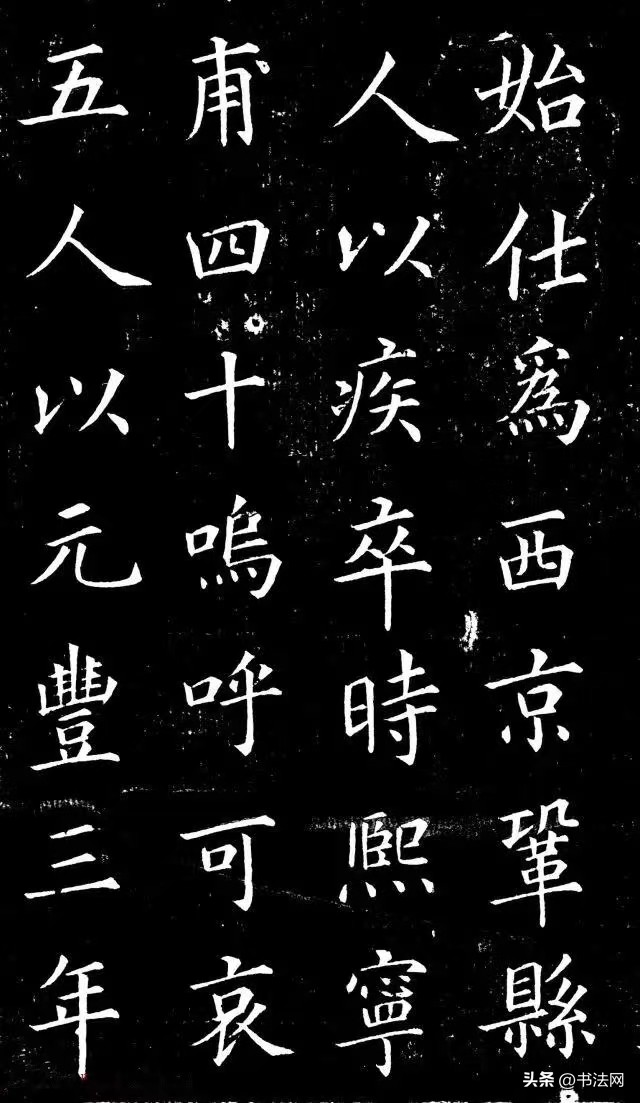 始仕爲西京鞏縣
人以疾卒時熙寧
甫四十嗚呼可哀
五人以元豐三年
头条 @书法网